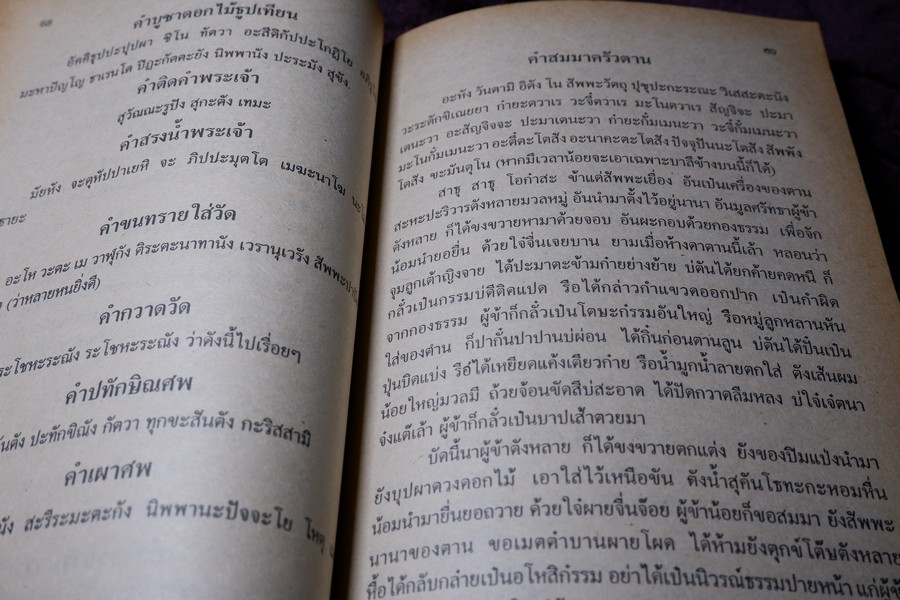 ๖๘
คำบูชาดอกไม้ธูปเทียน
อัคคิธูปะปุปผา ชิโน ทัตวา อะสีติกัปปะโกฏิโย
มะหาปัญโญ ธาเรนโต ปิฏะกัตตะยัง นิพพานัง ปะระมัง สุขัง
คำติดคำพระเจ้า
สุวัณณะรูปัง สุกะตัง เทมะ
คำสรงน้ำพระเจ้า
มัยหัง จะตุหัปปาเยหิ จะ ภิปปะมุตโต เมฆะนาโฆ
คำขนทรายใส่วัด
อะโห วะตะ เม วาฬุกัง ติระตะนาทานัง เวรานุเวรัง สัพพะ
(ว่าหลายหนยิ่งดี)
คำกวาดวัด
ระโชหะระณัง ระโชหะระณัง ว่าดังนี้ไปเรื่อยๆ
คำปทักษิณศพ
ปะทักขิณัง กัตวา ทุกขะสันตัง กะริสสามิ
คำเผาศพ
สะรีระมะตะกัง นิพพานะปัจจะโย โหตุ
๗๑
คำสมมาครัวตาน
อะหัง วันตามิ อิตัง โน สัพพะวัตถุ ปุชุปะกะระณะ วิเสสะตะนัง
วะระตักขิเณยยา กำยะตวาเร วะจี๋ตวาเร มะโนตวาเร สัญจิจะ ปะมา
เตนะวา อะสัญจิจจะ ปะมาเตนะวา กำยะกั๋มเมนะวา วะจี๋กั๋มเมนะวา
มะโนกั๋มเมนะวา อะตี๋ตะโตสัง อะนาคะตะโตสัง ปัจจุปันนะโตสัง สัพพัง
โตสัง ขะมันตุโน (หากมีเวลาน้อยจะเอาเฉพาะบาลีข้างบนนี้ก็ได้)
สาธุ สาธุ โอก๋าสะ ข้าแต่สัพพะเยื่อง อันเป๋นเครื่องของตาน
สะหะปะริวารตังหลายมวลหมู่ อันนำมาตั้งไว้อยู่นานา อันมูลศรัทธาผู้ข้า
ตังหลาย ก็ได้ขงขวายหามาด้วยจอบ อันผะกอบด้วยกองธรรม เพื่อจัก
น้อมนำยอยื่น ด้วยใจ๋จื่นเจยบาน ยามเมื่อห้างดาตานนี้เล้า หลอนว่า
จุมลูกเต้าญิงจาย ได้ปะมาตะข้ามก๋ายย่างย้าย บ่ตันได้ยกค้ายคดหนี ก็
กลั๋วเป๋นกรรมบ่ดีติดแปด รือได้กล่าวกำแขวดออกปาก เป๋นกำผิด
จากกองธรรม ผู้ข้าก็กลั๋วเป๋นโตษะก๋รรมอันใหญ่ รือหมู่ลูกหลานหัน
ใส่ของต๋าน ก็ปากั๋นปาปานบ่ผ่อน ได้กิ๋นก่อนตานลูน บ่ตันได้ปั๋นเป๋น
ปุ๋นบิดแบ่ง รือได้เหยียดแค้งเดียวก๋าย รือน้ำมูกน้ำลายตกใส่ ดังเส้นผม
น้อยใหญ่มวลมี ถ้วยจ้อนขัดสีบ่สะอาด ได้ปัดกวาดลืมหลง บ่ใจ๋เจ๋ตนา
จ๋งแต๊เล้า ผู้ข้าก็กลั๋วเป๋นบาปเส้าตวยมา
บัดนี้นาผู้ข้าตังหลาย ก็ได้ขงขวายตกแต่ง ยังของปิมแป๋งนำมา
ยังบุปผาดวงดอกไม้ เอาใส่ไว้เหนือขัน ดังน้ำสุคันโธทะกะหอมหื่น
น้อมนำมายื่นยอถวาย ด้วยใจ๋ผายจื่นจ๊อย ผู้ข้าน้อยก็ขอสมมา ยังสัพพะ
นานาของตาน ขอเมตตำบานผายโผด ได้ห้ามยังตุกข์โต๊ษตังหลาย
หื้อได้กลับกล๋ายเป๋นอโหสิก๋รรม อย่าได้เป๋นนิวรณ์ธรรมปายหน้า แก่ผู้ข้า